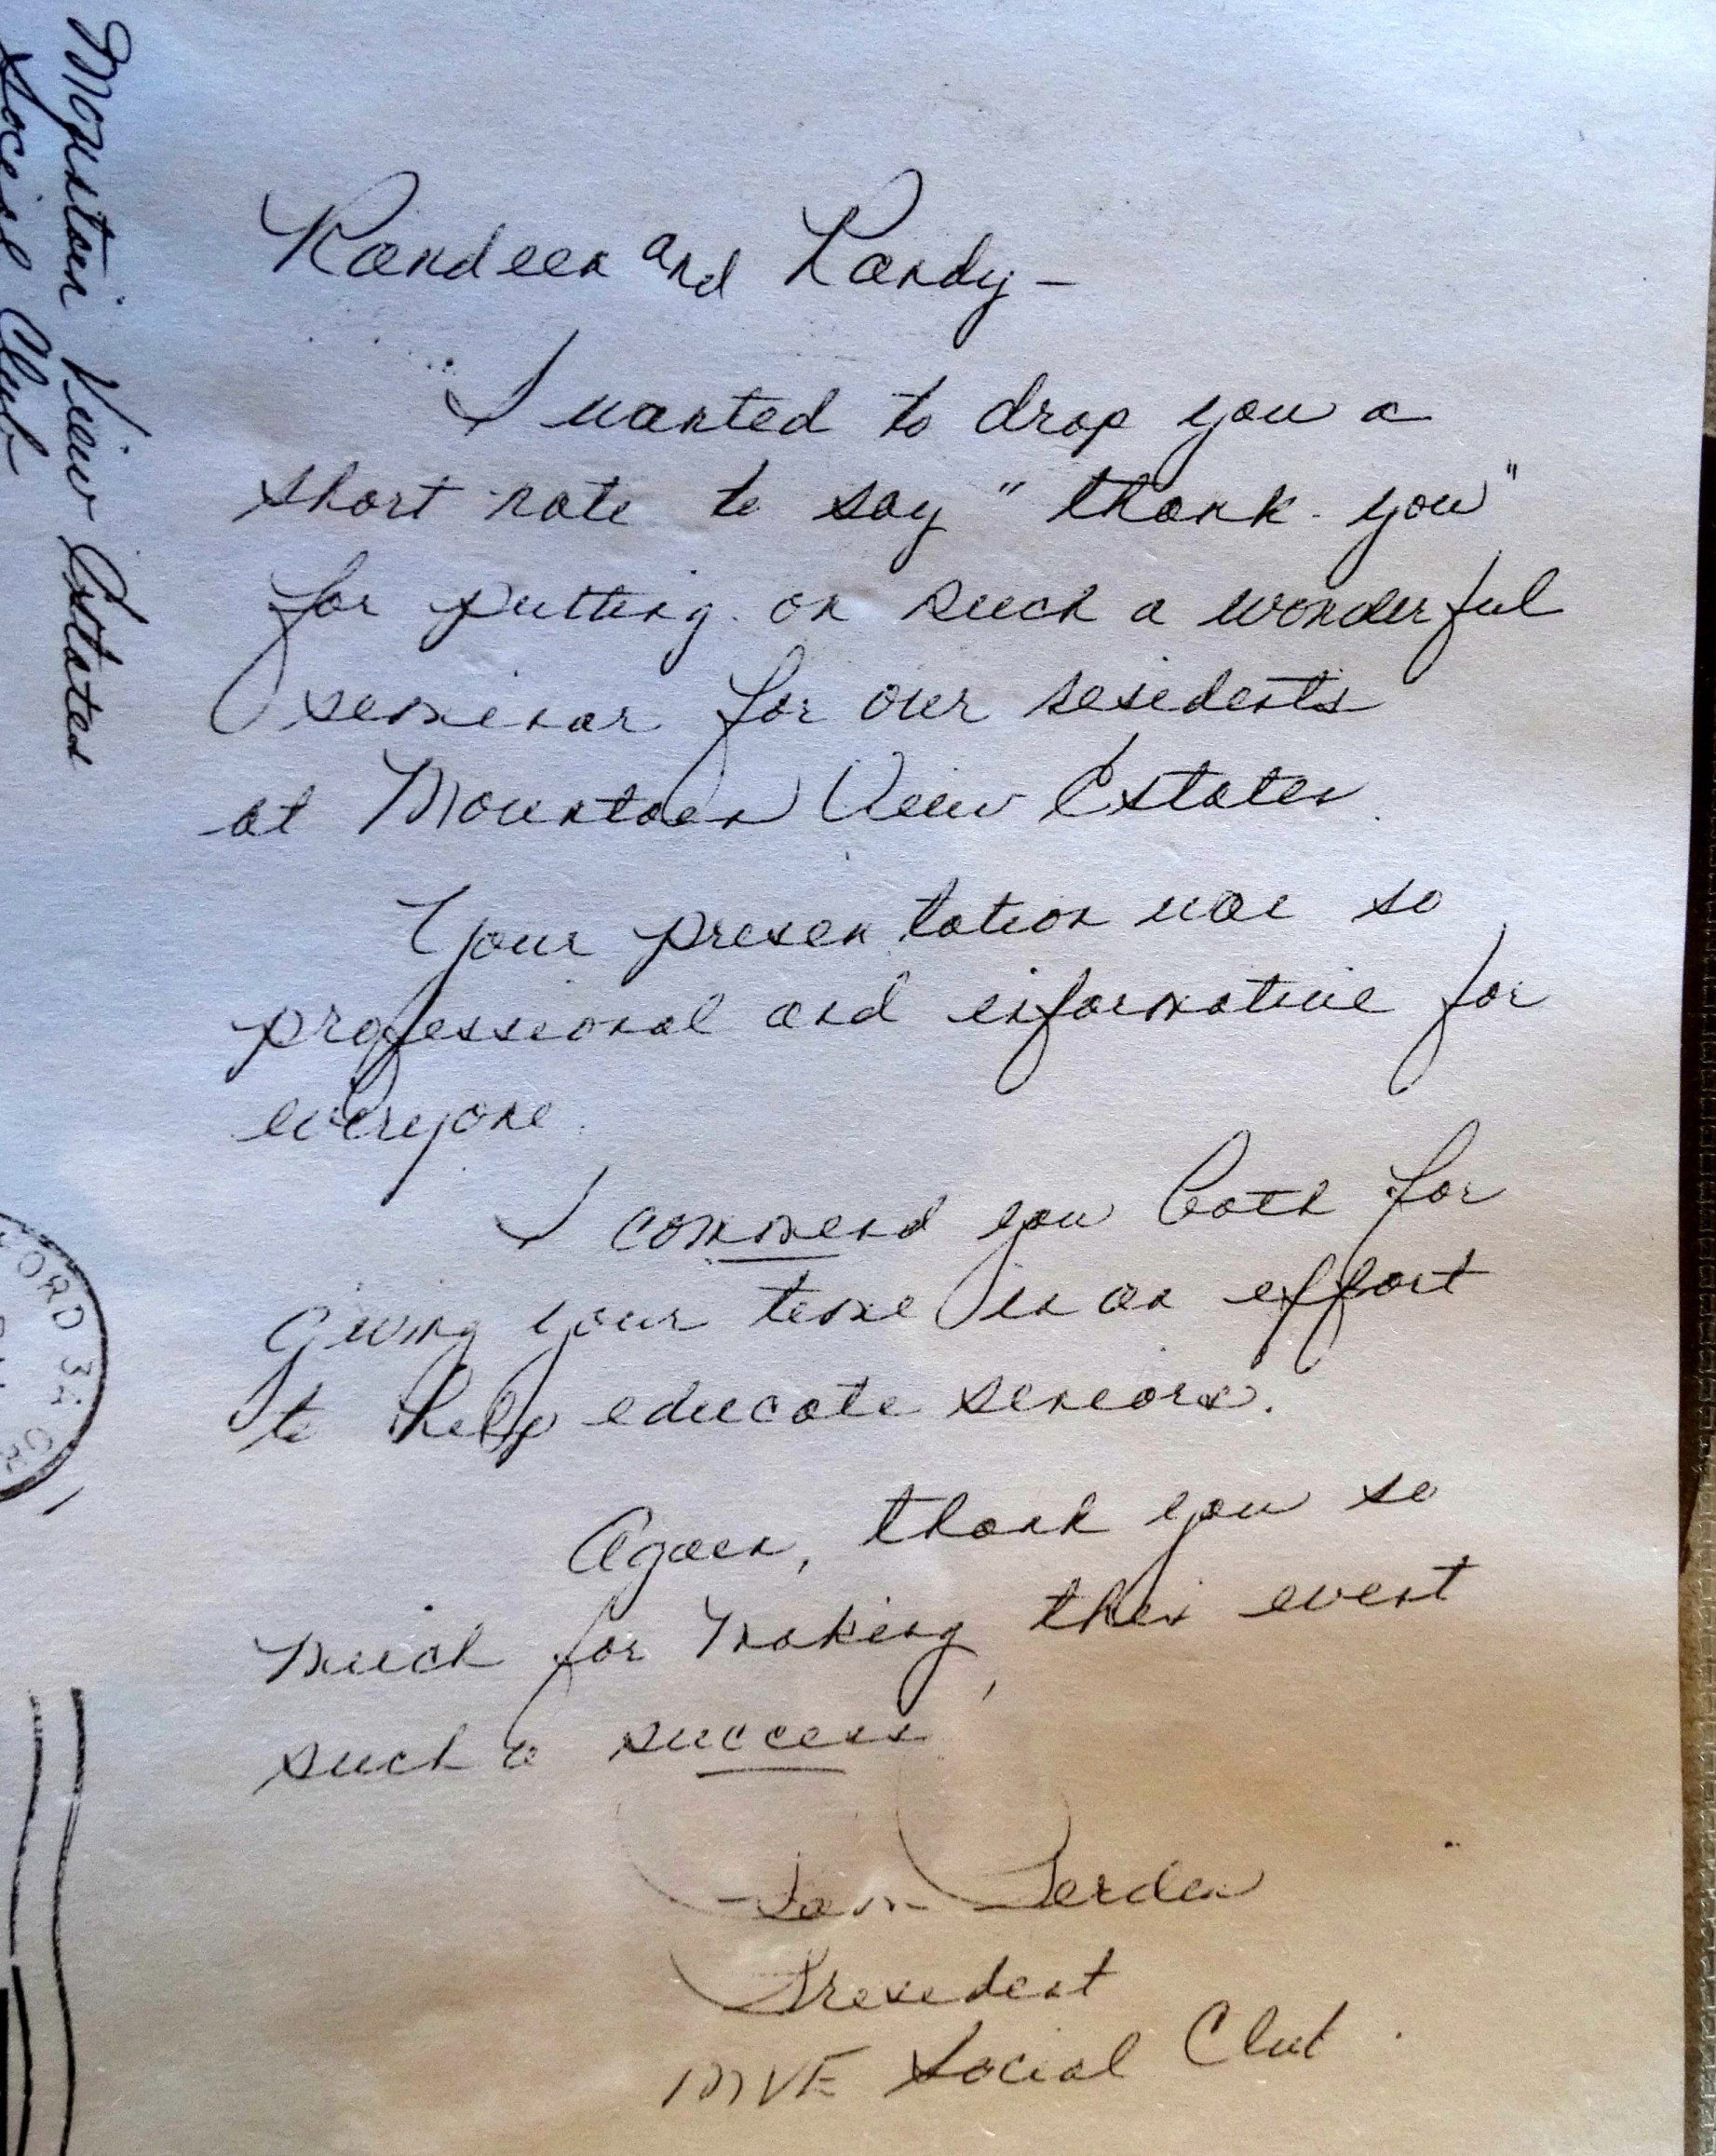 Mountain View Estates
Social Club
Randeen and Randy -
I wanted to drop you a
short note to say "thank you"
for putting on such a wonderful
seminar for our residents
at Mountain View Estates.
Your presentation was so
professional and informative for
everyone.
I commend you both for
giving your time in an effort
to help educate seniors.
Again, thank you so
much for making this event
such a success
President
MVE Social Club
ORD